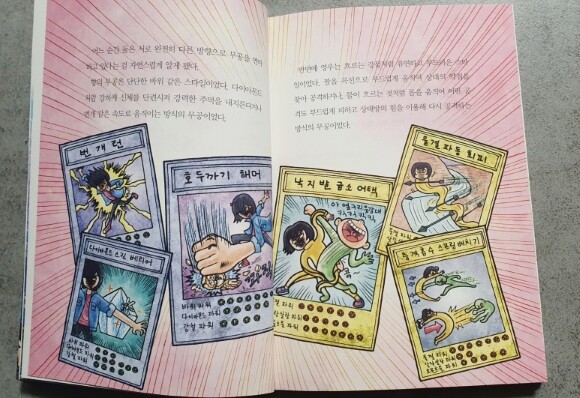 어느 순간 둘은 서로 완전히 다른 방향으로 무공을 연마
하고 있다는 걸 자연스럽게 알게 됐다.
형의 무공은 단단한 바위 같은 스타일이었다. 다이아몬드
처럼 강하게 신체를 단련시켜 강력한 주먹을 내지른다거나
번개 같은 속도로 움직이는 방식의 무공이었다.
반면에 영우는 흐르는 강물처럼 유연하고 부드러운 스타
일이었다. 팔을 곡선으로 부드럽게 움직여 상대의 약점을
찾아 공격하거나, 물이 흐르는 것처럼 몸을 움직여 어떤 공
격도 부드럽게 피하고 상대방의 힘을 이용해 다시 공격하는
방식의 무공이었다.
번개 런
호두까기 해머
바위 파워
다이아몬드 파워
강철 파워
다이아몬드 스킨 배리어
바위 파워
다이아몬드 파워
강철 파워
낙지발 급소 어택
물결 자동 회피
물결 파워